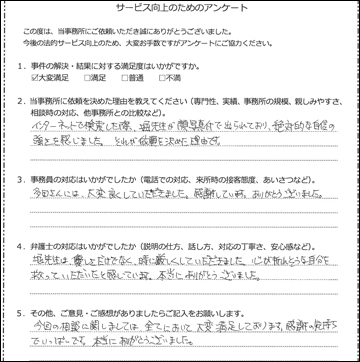 サービス向上のためのアンケート
この度は、当事務所にご依頼いただき誠にありがとうございました。
今後の法的サービス向上のため、大変お手数ですがアンケートにご協力ください。
1．事件の解決・結果に対する満足度はいかがですか。
☑大変満足　□満足　□普通　□不満
2．当事務所に依頼を決めた理由を教えてください（専門性、実績、事務所の規模、親しみやすさ、
相談時の対応、他事務所との比較など）。
インターネットで検索した際、堀先生が顔写真付で出られており、絶対的な自信の
強さを感じました。それが依頼を決めた理由です。
3．事務員の対応はいかがでしたか（電話での対応、来所時の接客態度、あいさつなど）。
多田さんには、大変良くしていただきました。感謝しています。ありがとうございました。
4．弁護士の対応はいかがでしたか（説明の仕方、話し方、対応の丁寧さ、安心感など）。
堀先生は、優しさだけでなく、時に厳しくしていただきました。心が折れそうな自分を
救っていただいたと感じています。本当にありがとうございました。
5．その他、ご意見・ご感想がありましたらご記入をお願いします。
今回の相談に関しましては、全てにおいて大変満足しております。感謝の気持ち
でいっぱいです。本当にありがとうございました。